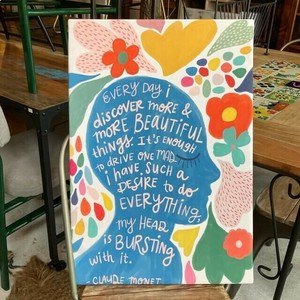 EVERY DAY i
discover MORE &
MORE BEAUTIFUL
things. It's ENOUGH
to DRIVE ONE MAD.
i have SUCH a
DESIRE to do
EVERYTHING,
my HEAD
is BURSTING
with it.
- CLAUDE MONET